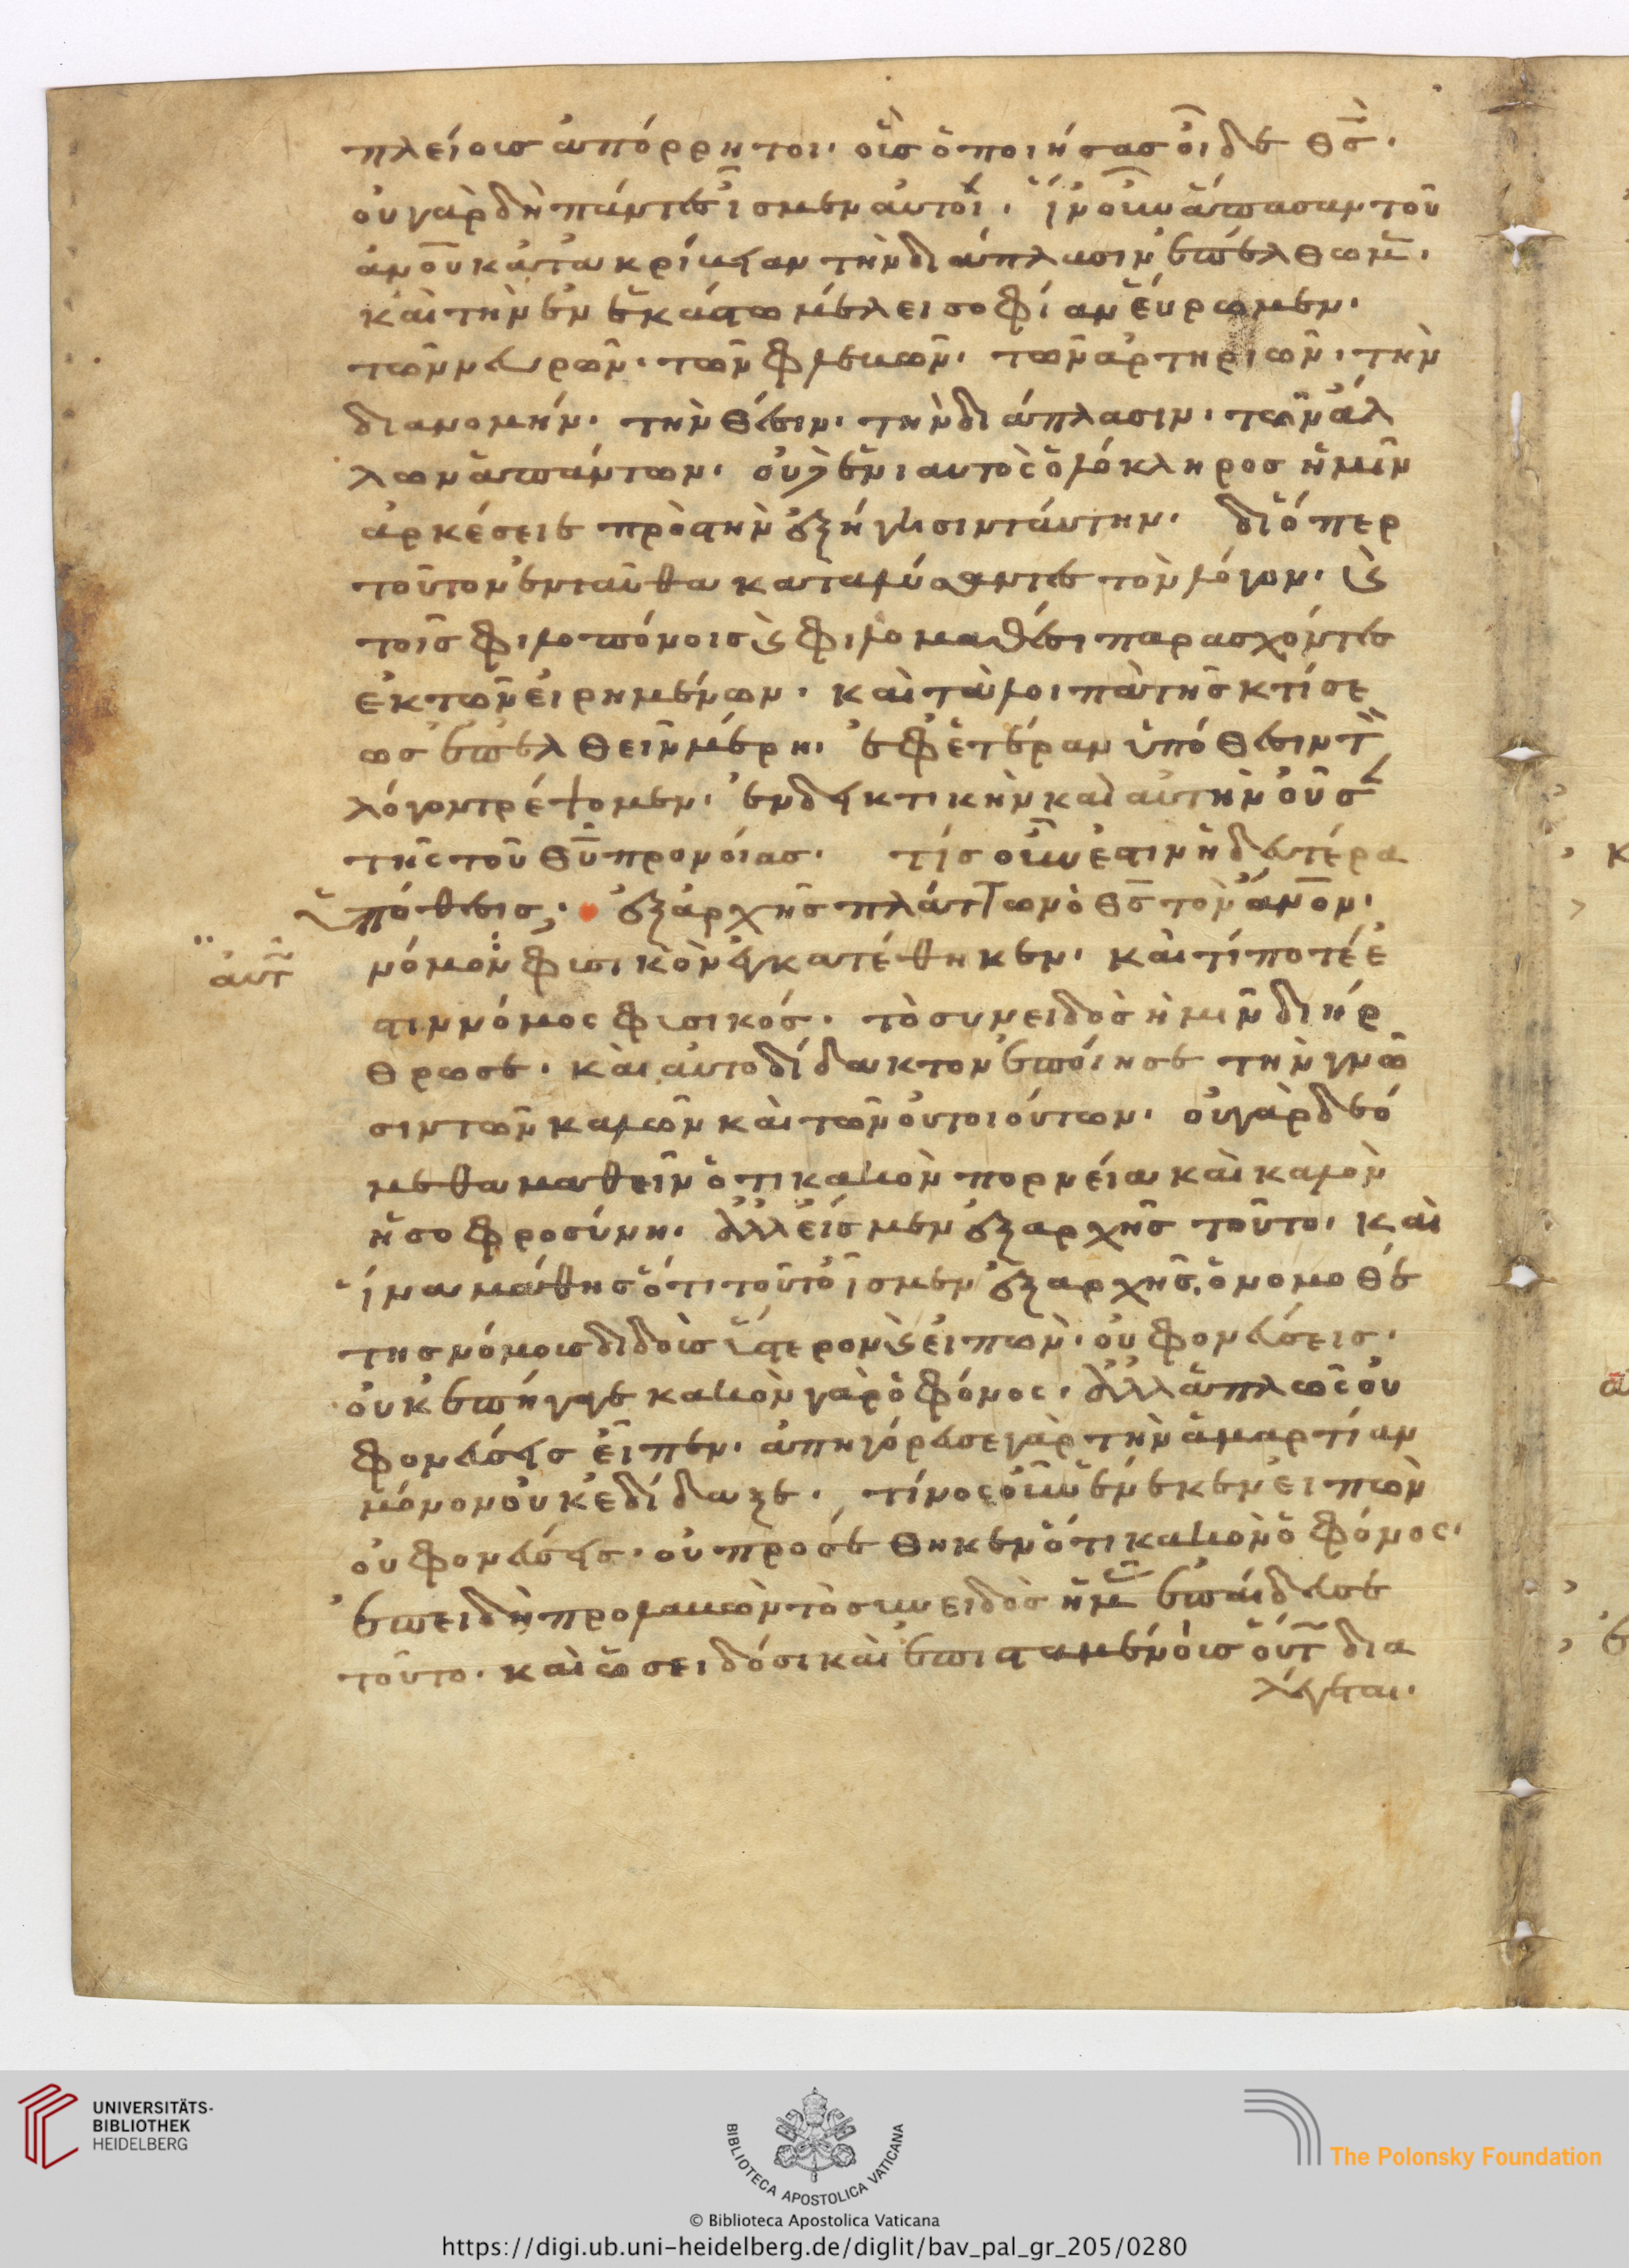 πλείους ἀπόρρητοι· οὓς ὁ ποιήσας οἶδε θς̅·
οὐ γὰρ δὴ πάντες ἴσμεν αὐτοί· ἵν' οὖν ἅπασαν τοῦ
ἀν̅ου κατὰ μικρὸν τὴν διάπλασιν ἐπέλθωμεν·
καὶ τὴν ἐν ἑκάστω μέλει σοφίαν εὕρωμεν·
τῶν νεύρων· τῶν φλεβῶν· τῶν ἀρτηριῶν· τὴν
διανομήν· τὴν θέσιν· τὴν διάπλασιν· τῶν ἄλ
λων ἁπάντων· οὐχ ἐνιαυτὸς ὁλόκληρος ἡμῖν
ἀρκέσειε πρὸς τὴν ἐξήγησιν ταύτην· διόπερ
τοῦτον ἐνταῦθα καταλύσαντες τὸν λόγον· καὶ
τοῖς φιλοπόνοις καὶ φιλομαθέσι παρασχόντες
ἐκ τῶν εἰρημένων· καὶ τὰ λοιπὰ τῆς κτίσε
ως ἐπελθεῖν μέρη· ἐφ' ἑτέραν ὑπόθεσιν τὸν
λόγον τρέψομεν· ἐνδεικτικὴν καὶ αὐτὴν οὖσαν
τῆς τοῦ θυ̅ προνοίας· τίς οὖν ἐστιν ἡ δευτέρα
ὑπόθεσις· ἐξ ἀρχῆς πλάττων ὁ θς̅ τὸν ἄν̅ον·
νόμον φυσικὸν ἐγκατέθηκεν· καὶ τί ποτέ ἐ
στιν νόμος φυσικός· τὸ συνειδὸς ἡμῖν διήρ
θρωσε· καὶ αὐτοδίδακτον ἐποίησε τὴν γνῶ
σιν τῶν καλῶν καὶ τῶν οὐ τοιούτων· οὐ γὰρ δεό
μεθα μαθεῖν ὅτι κακὸν πορνεία καὶ καλὸν
ἡ σοφροσύνη· ἀλλ' εἴσμεν ἐξ ἀρχῆς τοῦτο· καὶ
ἵνα μάθης ὅτι τοῦτο ἴσμεν ἐξ ἀρχῆς, ὁ νομοθέ
της νόμους διδοὺς ὕστερον καὶ εἰπὼν· οὐ φονεύσεις·
οὐκ ἐπήγαγε κακὸν γὰρ ὁ φόνος· ἀλλ' ἁπλῶς οὐ
φονεύσεις εἶπεν· ἀπηγόρευσε γὰρ τὴν ἁμαρτίαν
μόνον οὐκ ἐδίδαξε· τίνος οὖν ἕνεκεν εἰπὼν
οὐ φονεύσεις· οὐ προσέθηκεν ὅτι κακὸν ὁ φόνος·
ἐπειδὴ προλαβὸν τὸ συνειδὸς ἡμᾶς ἐπαίδευσε
τοῦτο· καὶ ὡς εἰδόσι καὶ ἐπισταμένοις οὕτω δια
λέγεται·
αὐτῶ
UNIVERSITÄTS-
BIBLIOTHEK
HEIDELBERG
BIBLIOTECA APOSTOLICA VATICANA
The Polonsky Foundation
© Biblioteca Apostolica Vaticana
https://digi.ub.uni-heidelberg.de/diglit/bav_pal_gr_205/0280